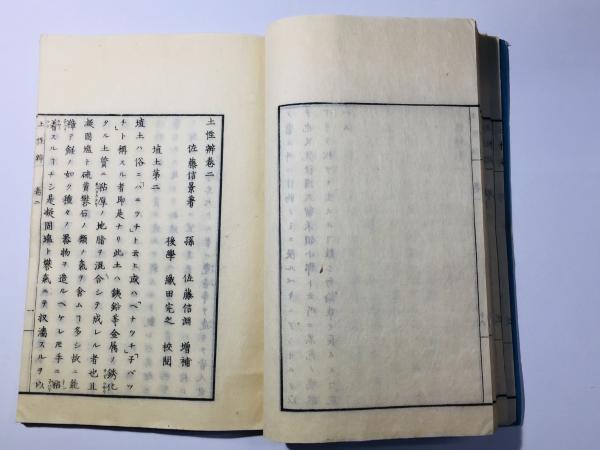 土性辨卷二
佐藤信景著 孫 佐藤信淵 增補
後學 織田完之 校閲
埴土第二
埴土ハ俗ニ「ハニツチ」ト云ヒ或ハ「ヘナツチ」「子バツ
チ」ト稱スル者即是ナリ此土ハ鐵鉛等金属ノ銹化
タル土質ニ粘厚ノ地脂ヲ混合シテ成レル者也且
凝固塩ト硫黄礬石ノ類ノ氣ヲ含ム丁多シ故ニ能
粘テ餅ノ如ク種々ノ器物ヲ造ルベケレ𪜈手ニ粘
着スル丁ナシ是凝固塩ト礬氣ニテ收濇スルヲ以
土性辨 卷二